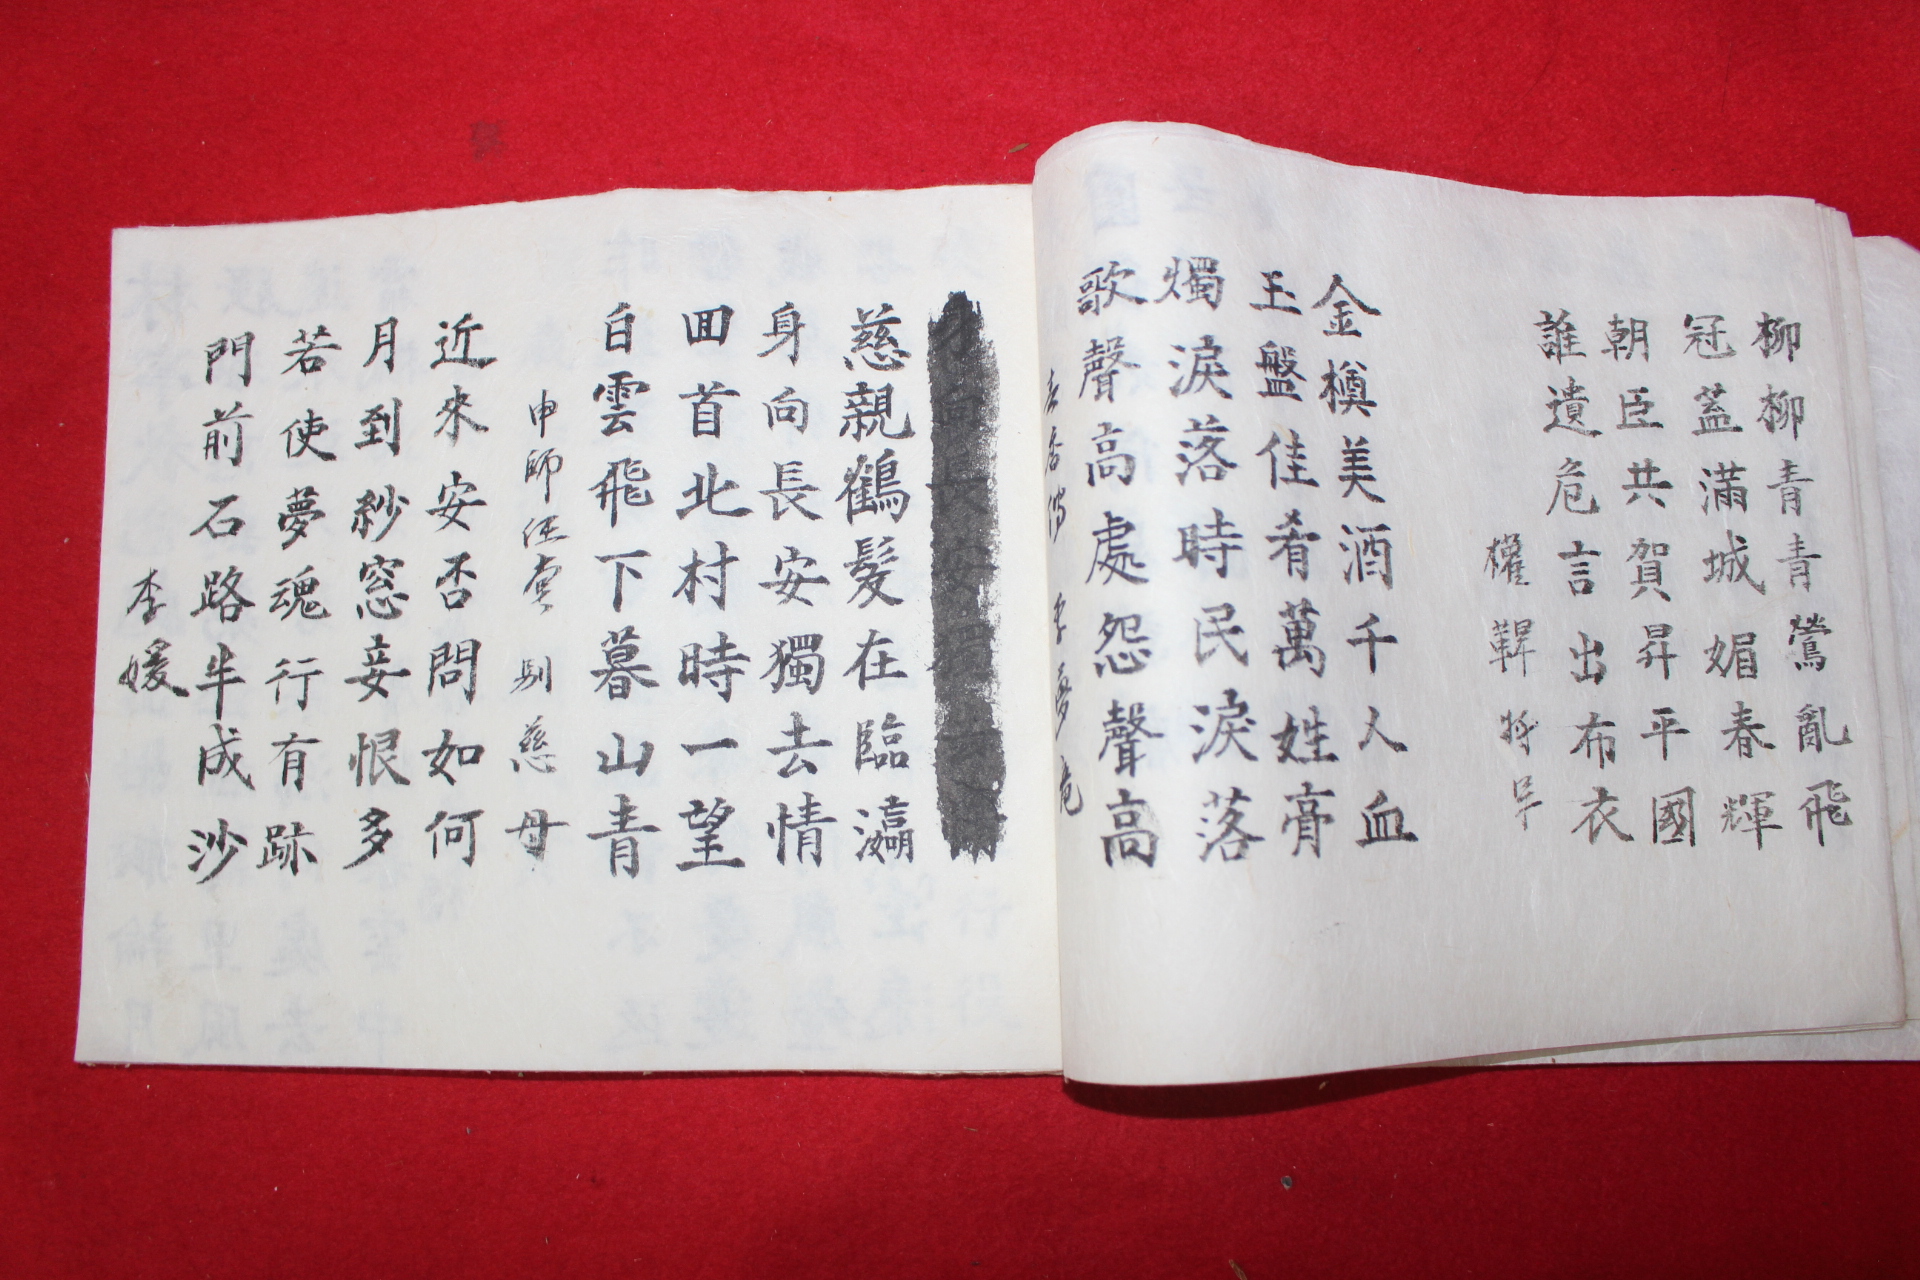 柳柳青青鶯亂飛
冠蓋滿城媚春輝
朝臣共賀昇平國
誰遺危言出布衣
權鞸
金樽美酒千人血
玉盤佳肴萬姓膏
燭淚落時民淚落
歌聲高處怨聲高
慈親鶴髮在臨瀛
身向長安獨去情
回首北村時一望
白雲飛下暮山青
申師任堂 別慈母
近來安否問如何
月到紗窓妾恨多
若使夢魂行有跡
門前石路半成沙
李媛